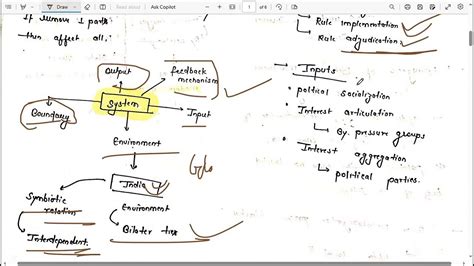 Draw
Ask Copilot
1
of 6
If remove 1 part
then affect all.
Output
feedback
mechanism
System
Boundary
Input
Environment
India
Symbiotic
relation
Environment
Interdependent
Bilater ties
Rule implementation
Rule adjudication.
Inputs
Political socialization
Interest articulation
By pressure groups
Interest aggregation
political parties.